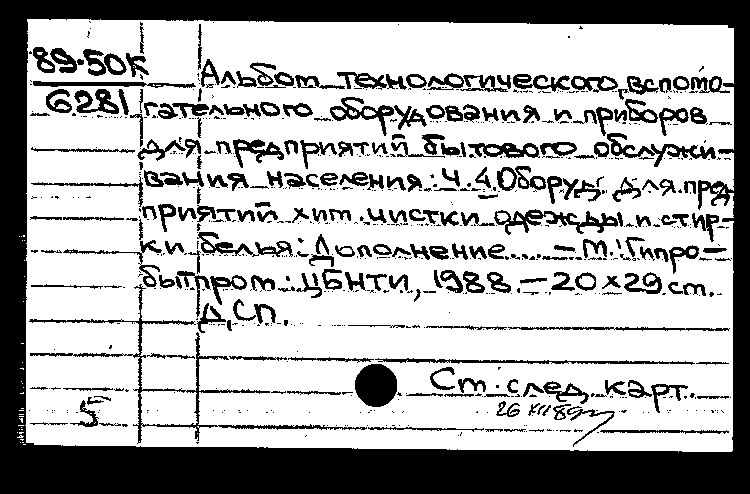 89-50К
6281
Альбом технологического, вспомо-
гательного оборудования и приборов
для предприятий бытового обслужи-
вания населения: Ч.4. Оборуд. для пред-
приятий хим. чистки одежды и стир-
ки белья: Дополнение... – М.: Гипро-
бытпром: ЦБНТИ, 1988. – 20×29 ст.
ДСП.
Ст. след. карт.
26 XII 89
5